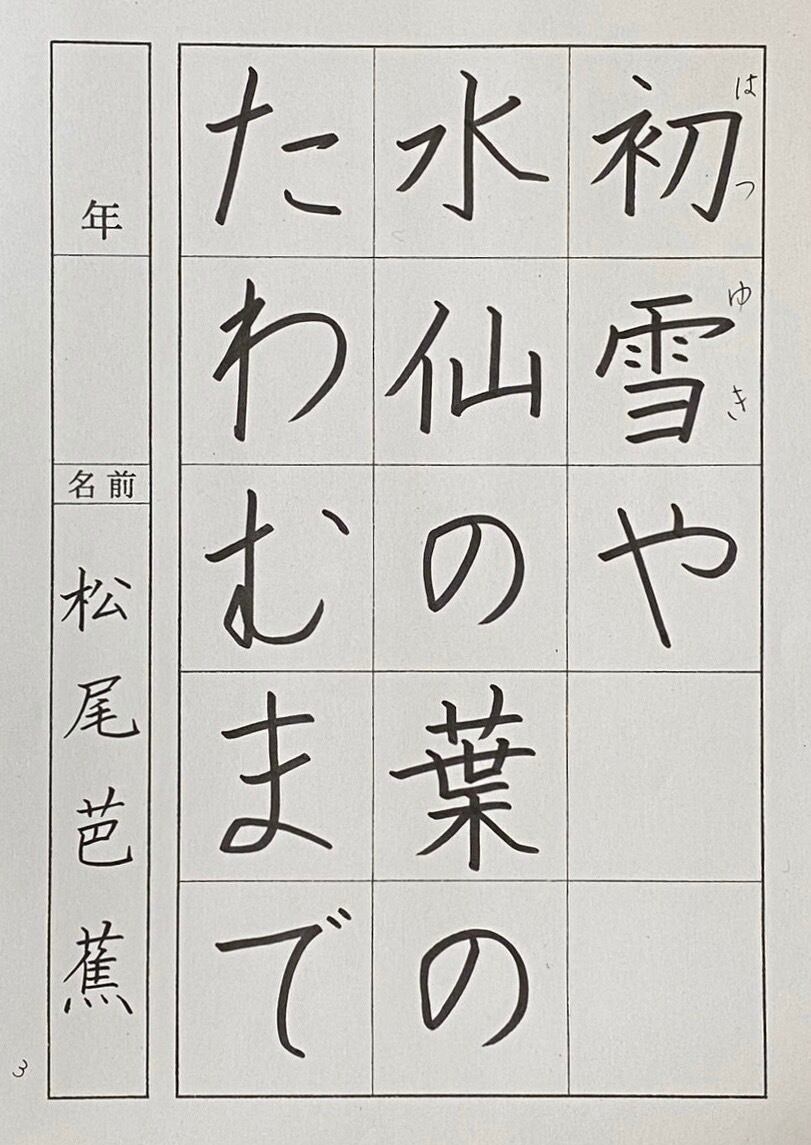 初雪や
はつ
ゆき
水仙の葉の
たわむまで
年
名前
松尾芭蕉
3